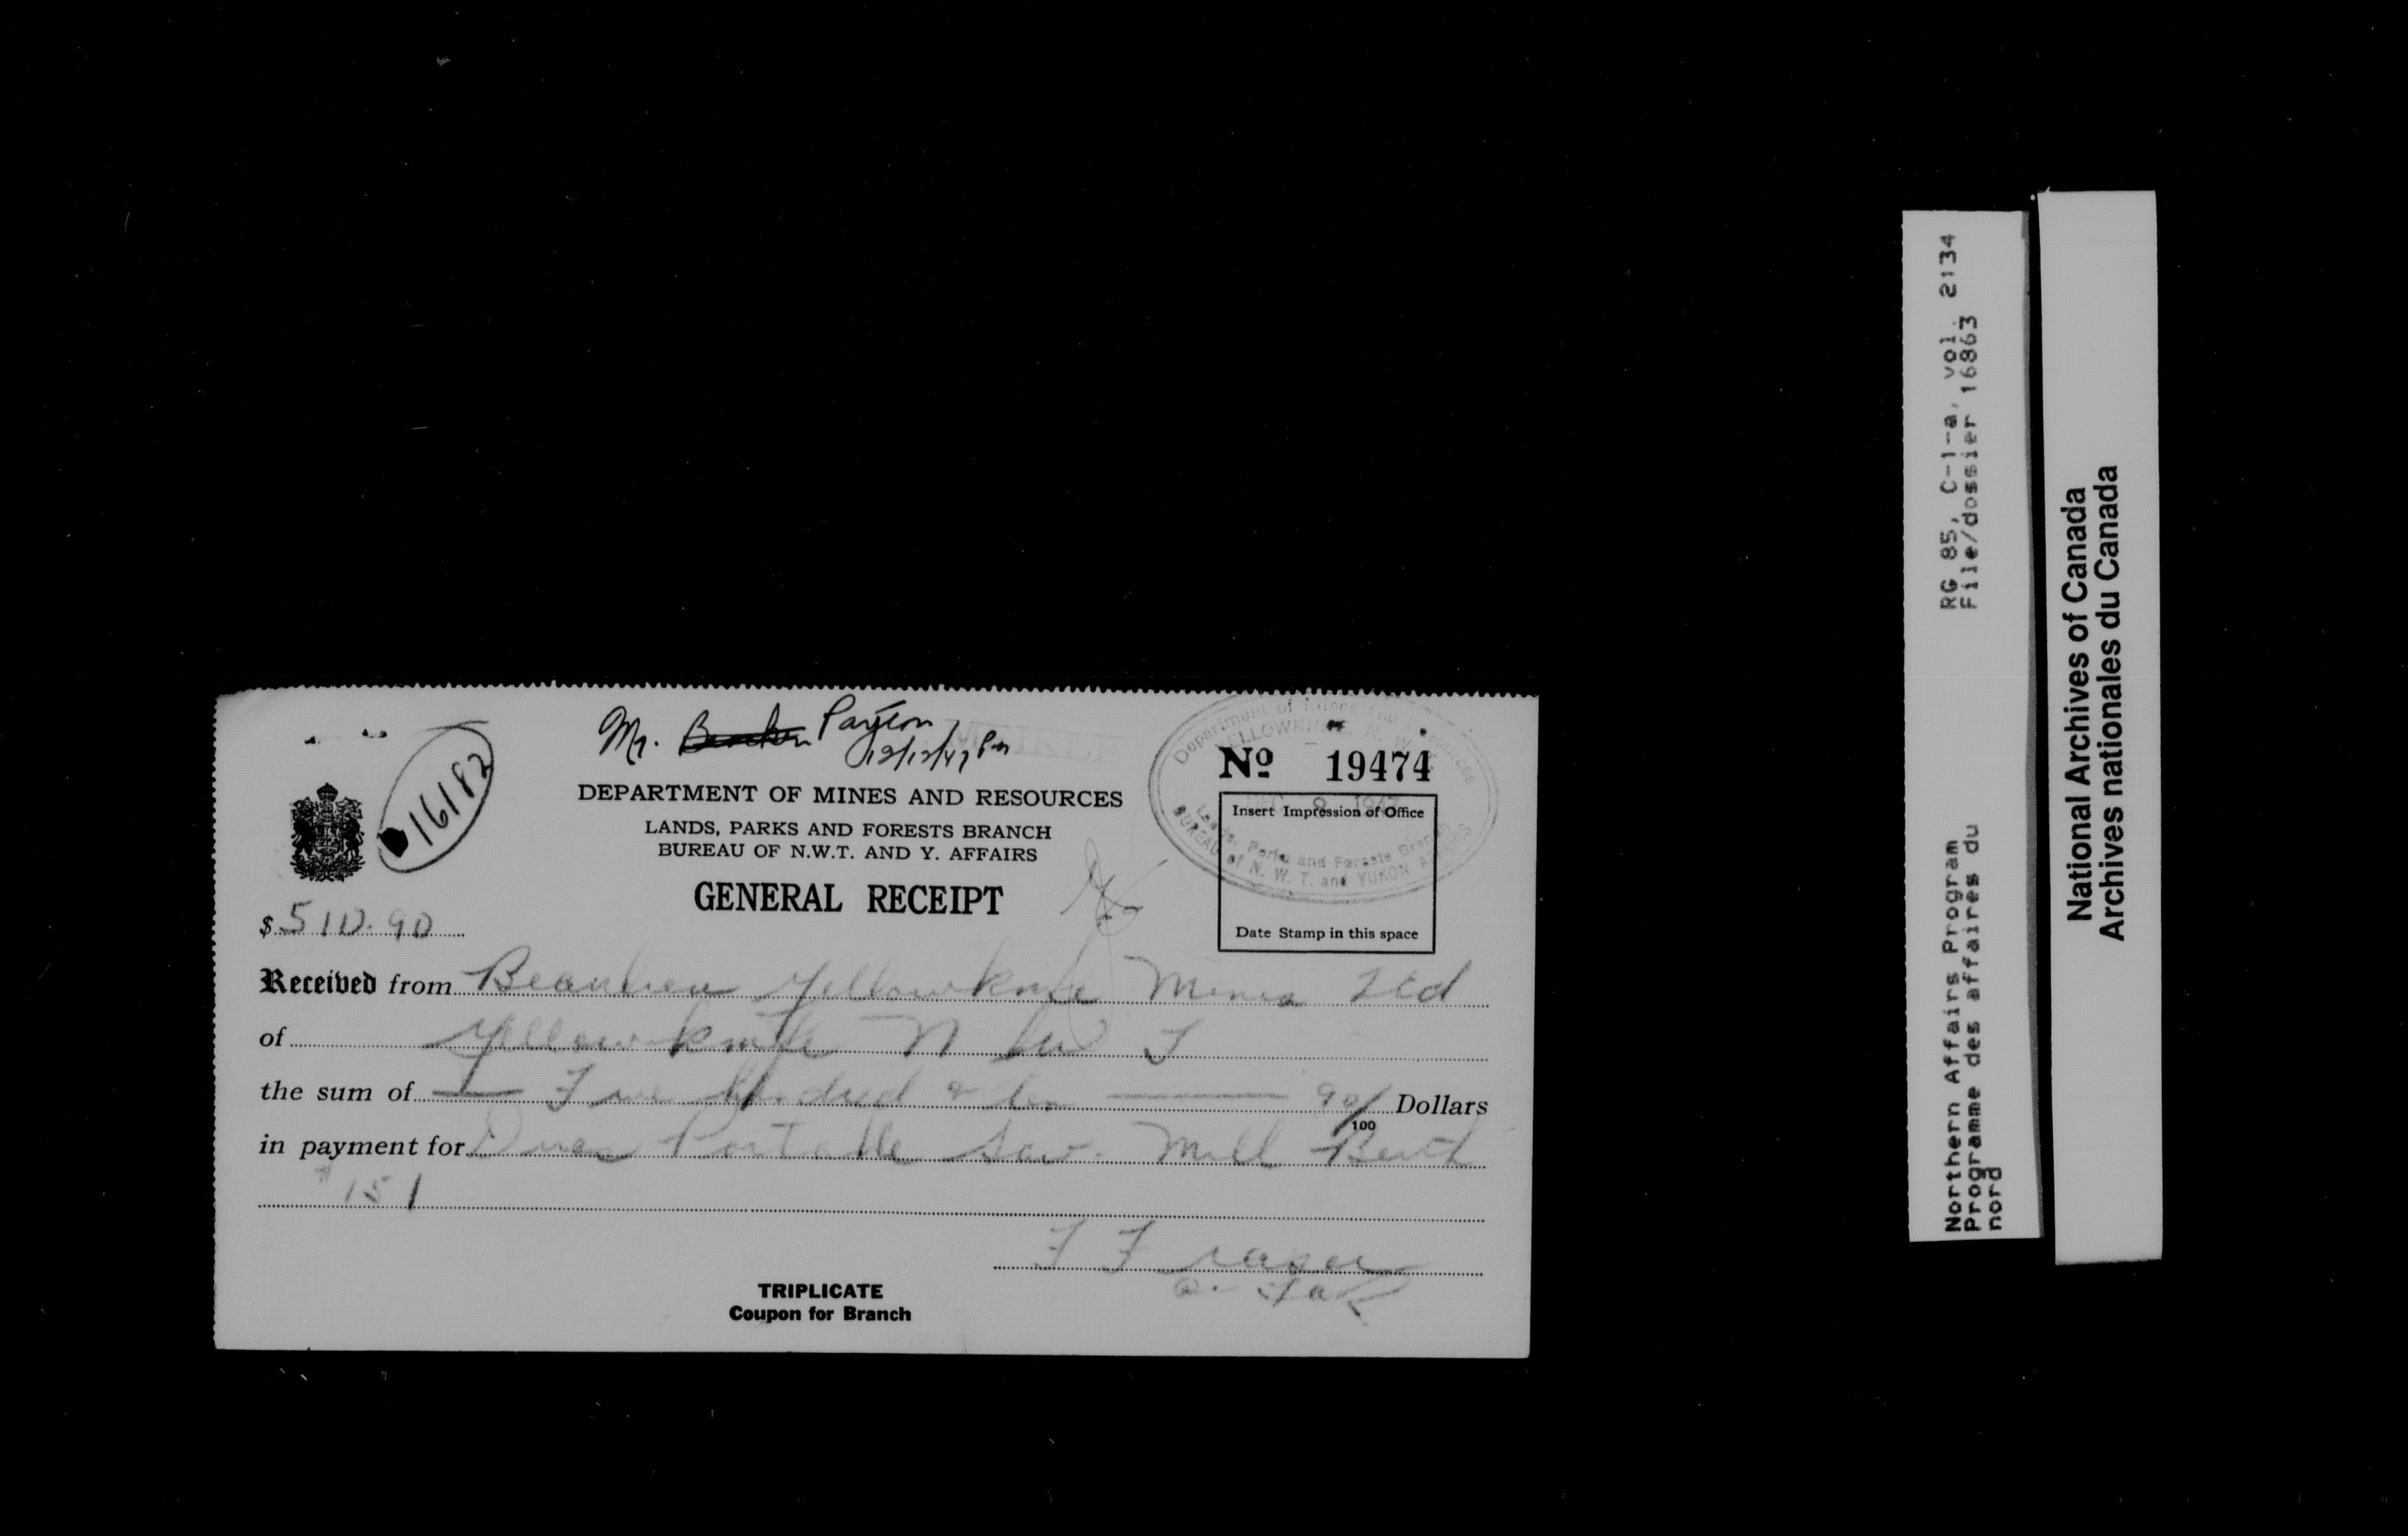 Mr. Payton
12/12/47
16182
Department of Mines and Resources
YELLOWKNIFE, N. W. T.
DEC 8 1947
Lands, Parks and Forests Branch
BUREAU of N. W. T. and YUKON AFFAIRS
No 19474
DEPARTMENT OF MINES AND RESOURCES
LANDS, PARKS AND FORESTS BRANCH
BUREAU OF N.W.T. AND Y. AFFAIRS
GENERAL RECEIPT
Insert Impression of Office
Date Stamp in this space
$ 510.90
Received from Beaulieu Yellowknife Mines Ltd
of Yellowknife N W T
the sum of — Five hundred & ten — 90/100 Dollars
in payment for Dues Portable Saw Mill Berth
# 151
F Fraser
TRIPLICATE
Coupon for Branch
RG 85, C-1-a, vol. 2134
File/dossier 16863
Northern Affairs Program
Programme des affaires du
nord
National Archives of Canada
Archives nationales du Canada